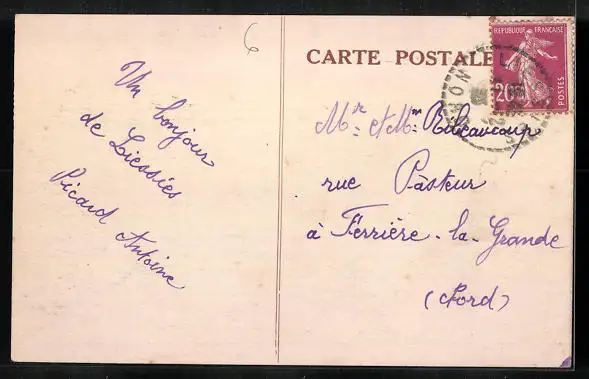 6
CARTE POSTALE
REPUBLIQUE FRANÇAISE
20c
POSTES
NORD
Un bonjour
de Liessies
Picard Antoine
Mr et Mme
rue Pasteur
à Ferrière-la-Grande
(Nord)